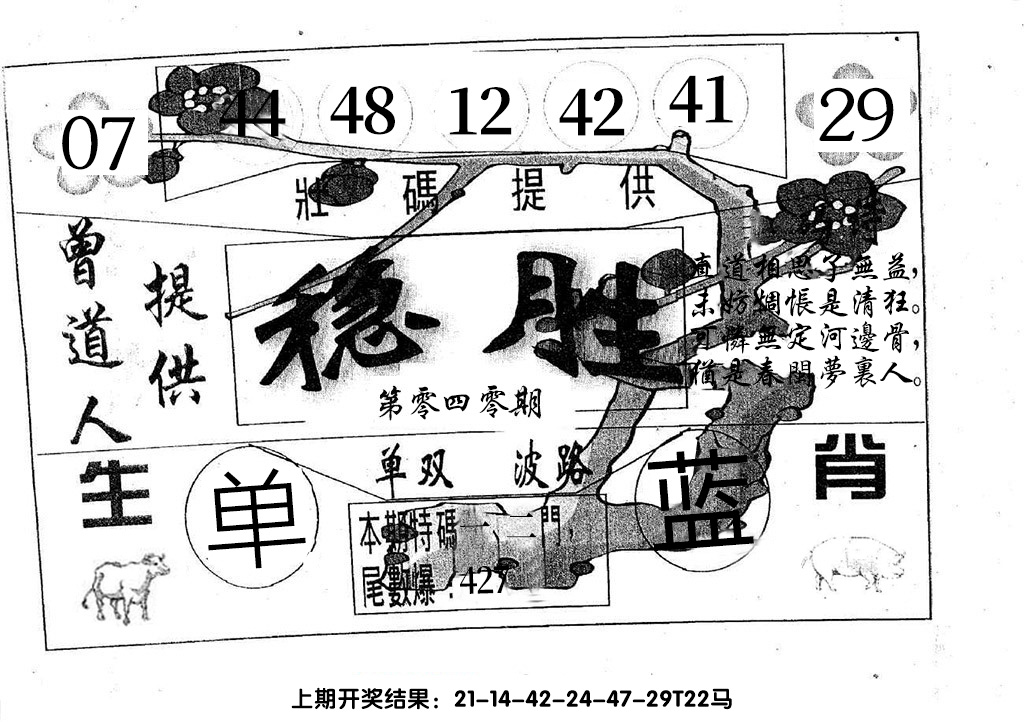 07 44 48 12 42 41 29
壯碼提供
曾道人
提供
稳胜
第零四零期
特
直道相思了無益，
未妨惆悵是清狂。
可憐無定河邊骨，
猶是春閨夢裏人。
单双 波路
生肖
单
蓝
本期特碼一、二門，
尾數爆：427
上期开奖结果：21-14-42-24-47-29T22马